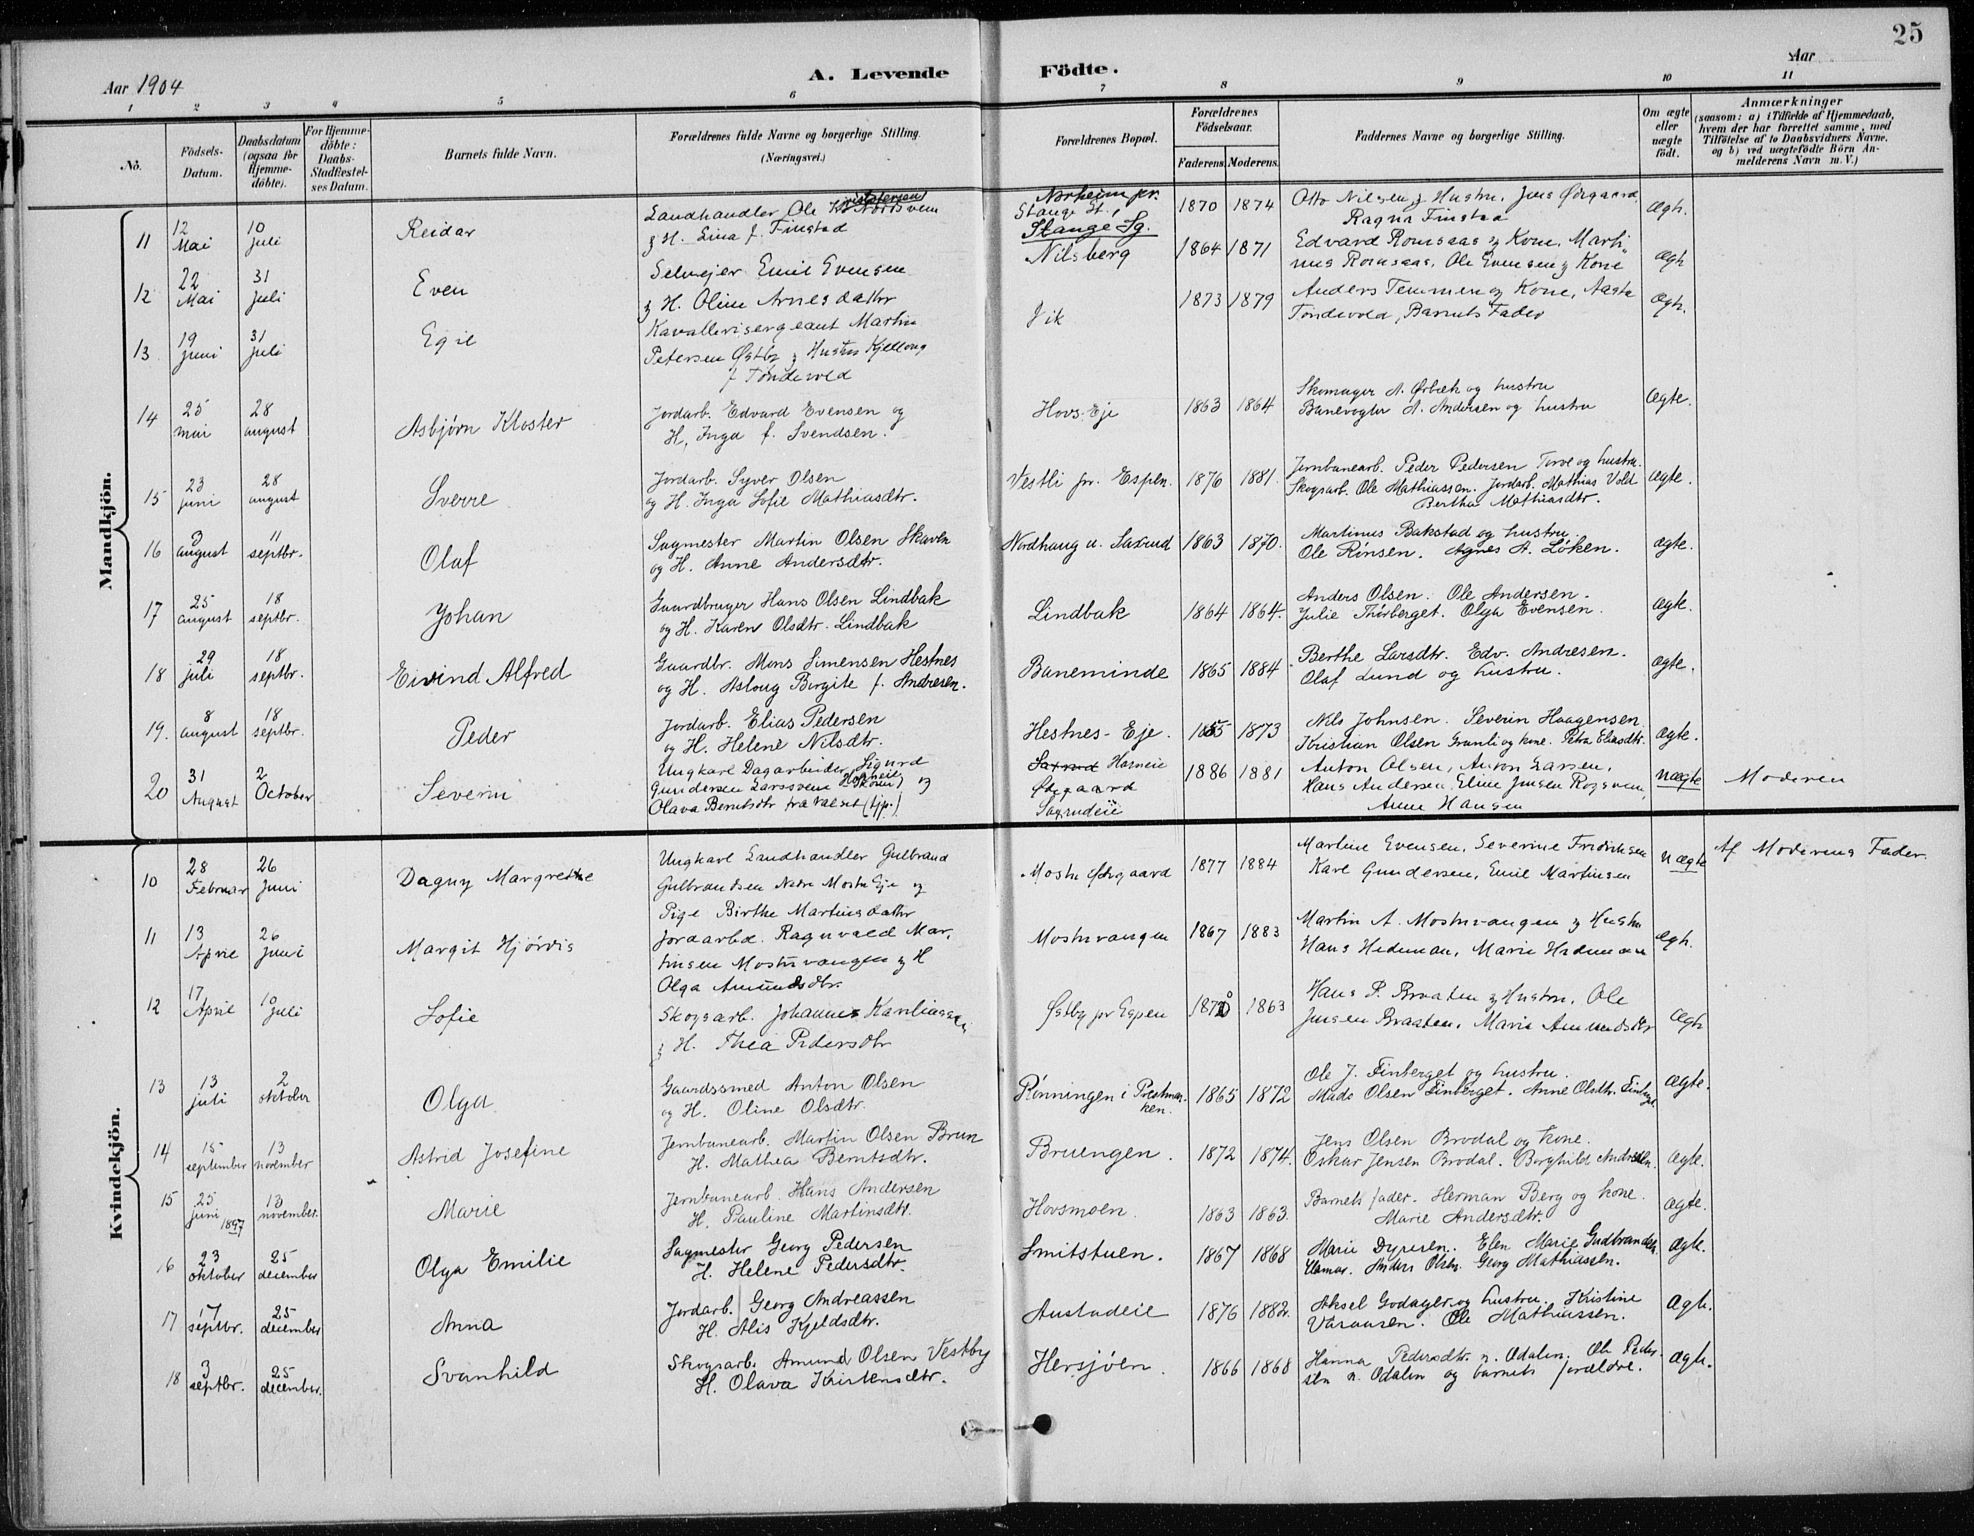 25
Aar 1904
A. Levende Födte.
Aar
1 2 3 4 5 6 7 8 9 10 11
No.
Födsels-Datum.
Daabsdatum (ogsaa for Hjemme-döbte).
For Hjemme-döbte: Daabs-Stadfæstel-ses Datum.
Barnets fulde Navn.
Forældrenes fulde Navne og borgerlige Stilling. (Næringsvei.)
Forældrenes Bopæl.
Forældrenes Födselsaar.
Faderens. Moderens.
Faddernes Navne og borgerlige Stilling.
Om ægte eller uægte födt.
Anmærkninger
(saasom: a) i Tilfælde af Hjemmedaab, hvem der har forrettet samme, med Tilföielse af to Daabsvidners Navne, og b) ved uægtefödte Börn Anmelderens Navn m. V.)
Mandkjön.
11 12 Mai 10 Juli Reidar
Landhandler Ole Nordsveen
& H. Lina f. Finstad
Norheim pr. Stange St., Stange Sg.
1870 1874
Otto Nilsen & Hustru, Jens Ørgaard
Ragna Finstad
Ægt.
12 22 Mai 31 Juli Even
Selveier Emil Evensen
& H. Oline Arnesdatter
Nilsberg
1864 1871
Edvard Romsaas & Kone, Marti-
nus Romsaas, Ole Evensen & Kone
Ægt
13 19 Juni 31 Juli Egil
Kavallerisergeant Martin
Petersen Østby & Hustru Kjellaug
f. Tøndevold
Vik
1873 1879
Anders Temmen og Kone, Aasta
Tøndevold, Barnets Fader
Ægt.
14 25 mai 28 august Asbjørn Kloster
Jordarb. Edvard Evensen og
H. Inga f. Svendsen.
Hovs-Eje
1863 1864
Skomager A. Ørbæk og hustru
Banevogter A. Andersen og hustru
Ægte.
15 23 juni 28 august Sverre
Jordarb. Syver Olsen
og H. Inga Sofie Mathiasdtr.
Vestli pr. Espen.
1876 1881.
Jernbanearb. Peder Pedersen Torve og hustru.
Skogsarb. Ole Mathiassen. Jordarb. Mathias Vold
Bertha Mathiasdtr.
Ægte.
16 3 august 11 septbr. Olaf
Sagmester Martin Olsen Skaven
og H. Anne Andersdtr.
Nordhaug u. Saxrud
1863 1870.
Martinus Bakstad og hustru.
Ole Rønsen. Agnes A. Løken.
ægte.
17 25 august 18 septbr. Johan
Gaardbruger Hans Olsen Lindbak
og H. Karen Olsdtr. Lindbak
Lindbak
1864 1864.
Anders Olsen. Ole Andersen.
Julie Thorberget. Olga Evensen.
ægte.
18 29 juli 18 septbr. Eivind Alfred
Gaardbr. Mons Simensen Hestnes
og H. Aslaug Birgite f. Andresen.
Baneminde
1865 1884
Berthe Larsdtr. Edv. Andresen.
Olaf Lund og hustru.
ægte.
19. 8 august 18 septbr. Peder
Jordarb. Elias Pedersen
og H. Helene Nilsdtr.
Hestnes-Eje.
1855 1873
Nils Johnsen. Severin Haagensen
Kristian Olsen Granli og kone. Petra Eliasdtr.
ægte.
20 31 August 2 October Severin
Ungkarl Dagarbeider Sigurd
Gundersen Larssveen og
Olava Berntsdtr fra Valset (tjp.)
Saxrud Horneie
Østgaard
Saxrudeie
1886 1881
Anton Olsen, Anton Larsen,
Hans Andersen, Eline Jensen Rogsveen,
Anne Hansen
Uægte
Moderen
Kvindekjön.
10 28 Februar 26 Juni Dagny Margrethe
Ungkarl Landhandler Gulbrand
Gulbrandsen Nedre Mostu Eje og
Pige Birthe Martinsdatter
Mostu Østgaard
1877 1884
Martine Evensen, Severine Fredriksen
Karl Gundersen, Emil Martinsen
Uægte
Af Moderens Fader.
11 13 April 26 Juni Margit Hjørdis
Jordarbd. Ragnvald Mar-
tinsen Mostuvangen & H
Olga Amundsdtr.
Mostuvangen
1867 1883
Martin A. Mostuvangen & Hustru
Hans Hedeman, Marie Hedeman
Ægt.
12 17 April 10 Juli Sofie
Skogsarb. Johannes Karlsen
& H. Thea Pedersdtr
Østby pr Espen
1870 1863
Hans P. Braaten & Hustru, Ole
Jensen Braaten, Marie Amundsdtr
Ægt
13 13 juli 2 oktober Olga
Gaardssmed Anton Olsen
og H. Oline Olsdtr.
Rønningen i Prestmar-
ken.
1865 1872
Ole J. Finberget og hustru.
Mads Olsen Finberget. Anne Olsdtr. Finberget.
Ægte.
14 15 september 13 november Astrid Josefine
Jernbanearb. Martin Olsen Brun
H. Mathea Berntsdtr.
Bruengen.
1872 1874.
Jens Olsen Brodal og kone.
Oskar Jensen Brodal. Borghild Andersen.
Ægte.
15 25 juni 1897 13 november. Marie
Jernbanearb. Hans Andersen
H. Pauline Martinsdtr.
Hovsmoen.
1863 1863.
Barnets fader. Herman Berg og kone.
Marie Andersdtr.
Ægte.
16 23 oktober 25 december Olga Emilie
Sagmester Georg Pedersen
H. Helene Pedersdtr.
Smitstuen.
1867 1868
Marie Dyresen. Elen Marie Gudbrandsen
Hamar. Anders Olsen. Georg Mathiassen.
Ægte.
17 17 septbr. 25 december Anna
Jordarb. Georg Andreassen
H. Alis Kjeldsdtr.
Austadeie
1876 1882.
Aksel Godager og hustru. Kristine
Ole Mathiassen.
Ægt.
18 3 septbr. 25 december. Svanhild
Skogsarb. Amund Olsen Vestby
H. Olava Kristensdtr.
Hersjøen.
1866 1868
Hanna Pedersdtr. n. Odalen. Ole Peder-
sen n. Odalen og barnets forældre.
Ægt.